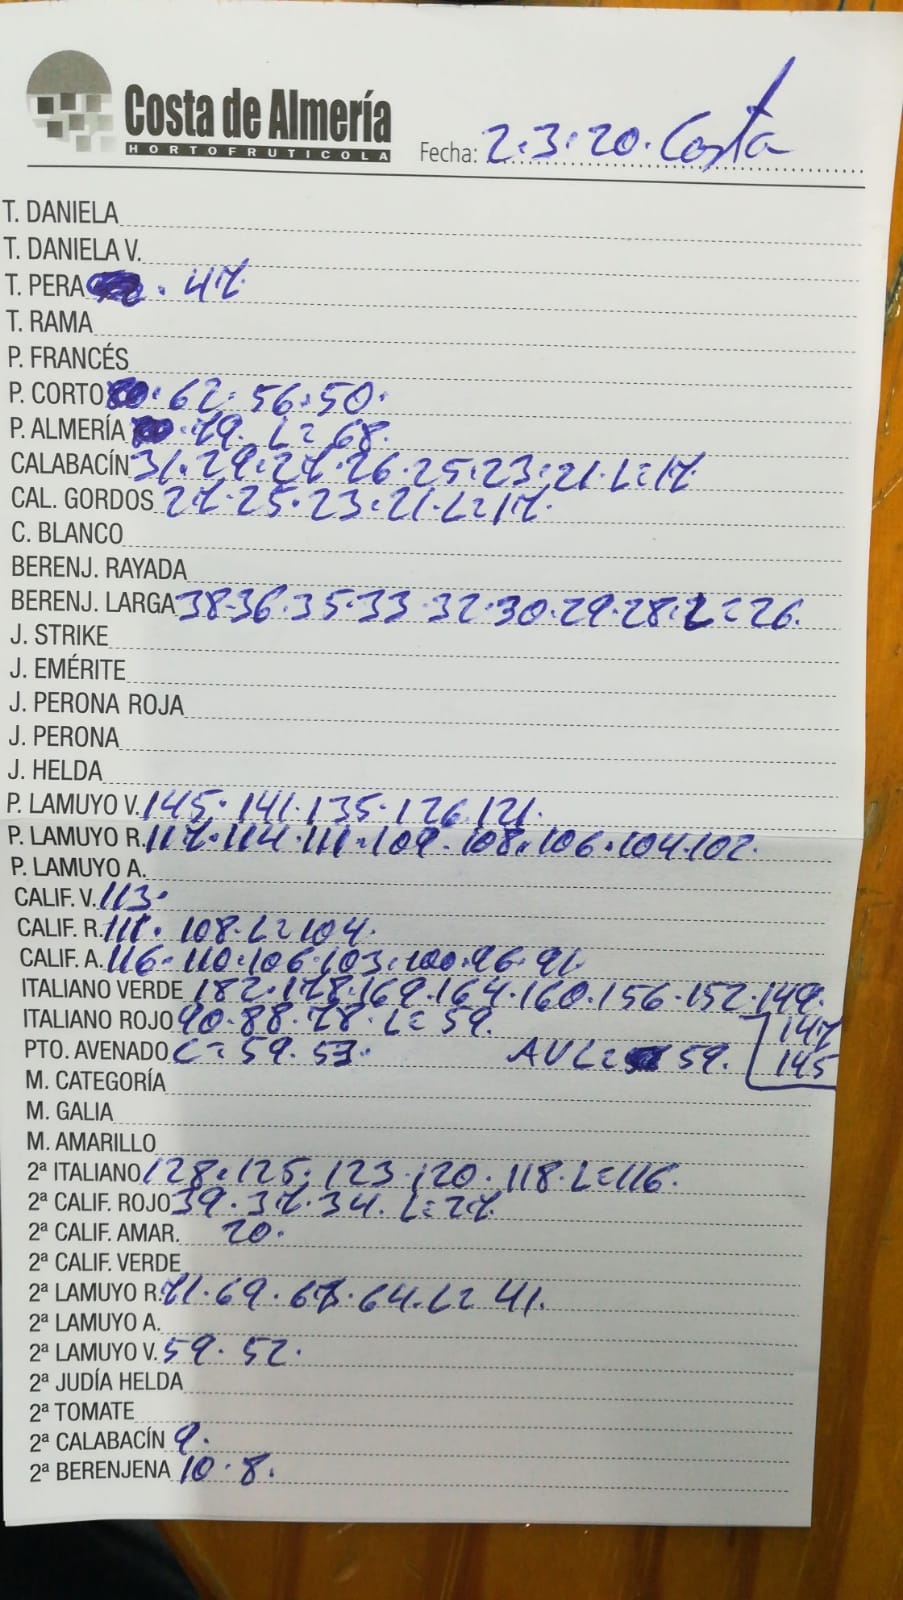 Costa de Almería
HORTOFRUTICOLA
Fecha: 2.3.20. Costa
T. DANIELA
T. DANIELA V.
T. PERA . 47.
T. RAMA
P. FRANCÉS
P. CORTO . 62. 56. 50.
P. ALMERÍA . 79. L= 68.
CALABACÍN 31. 29. 27. 26. 25. 23. 21. L= 17
CAL. GORDOS 27. 25. 23. 21. L= 17.
C. BLANCO
BERENJ. RAYADA
BERENJ. LARGA 38. 36. 35. 33. 32. 30. 29. 28. L= 26.
J. STRIKE
J. EMÉRITE
J. PERONA ROJA
J. PERONA
J. HELDA
P. LAMUYO V. 145. 141. 135. 126. 121.
P. LAMUYO R. 117. 114. 111. 109. 108. 106. 104. 102.
P. LAMUYO A.
CALIF. V. 113.
CALIF. R. 111. 108. L= 104.
CALIF. A. 116. 110. 106. 103. 100. 96. 91.
ITALIANO VERDE 182. 178. 169. 164. 160. 156. 152. 149.
ITALIANO ROJO 90. 88. 78. L= 59. 147
PTO. AVENADO C= 59. 53. AVL= 59. 145
M. CATEGORÍA
M. GALIA
M. AMARILLO
2ª ITALIANO 128. 125. 123. 120. 118. L= 116.
2ª CALIF. ROJO 39. 37. 34. L= 27.
2ª CALIF. AMAR. 20.
2ª CALIF. VERDE
2ª LAMUYO R. 71. 69. 67. 64. L= 41.
2ª LAMUYO A.
2ª LAMUYO V. 59. 52.
2ª JUDÍA HELDA
2ª TOMATE
2ª CALABACÍN 9.
2ª BERENJENA 10. 8.